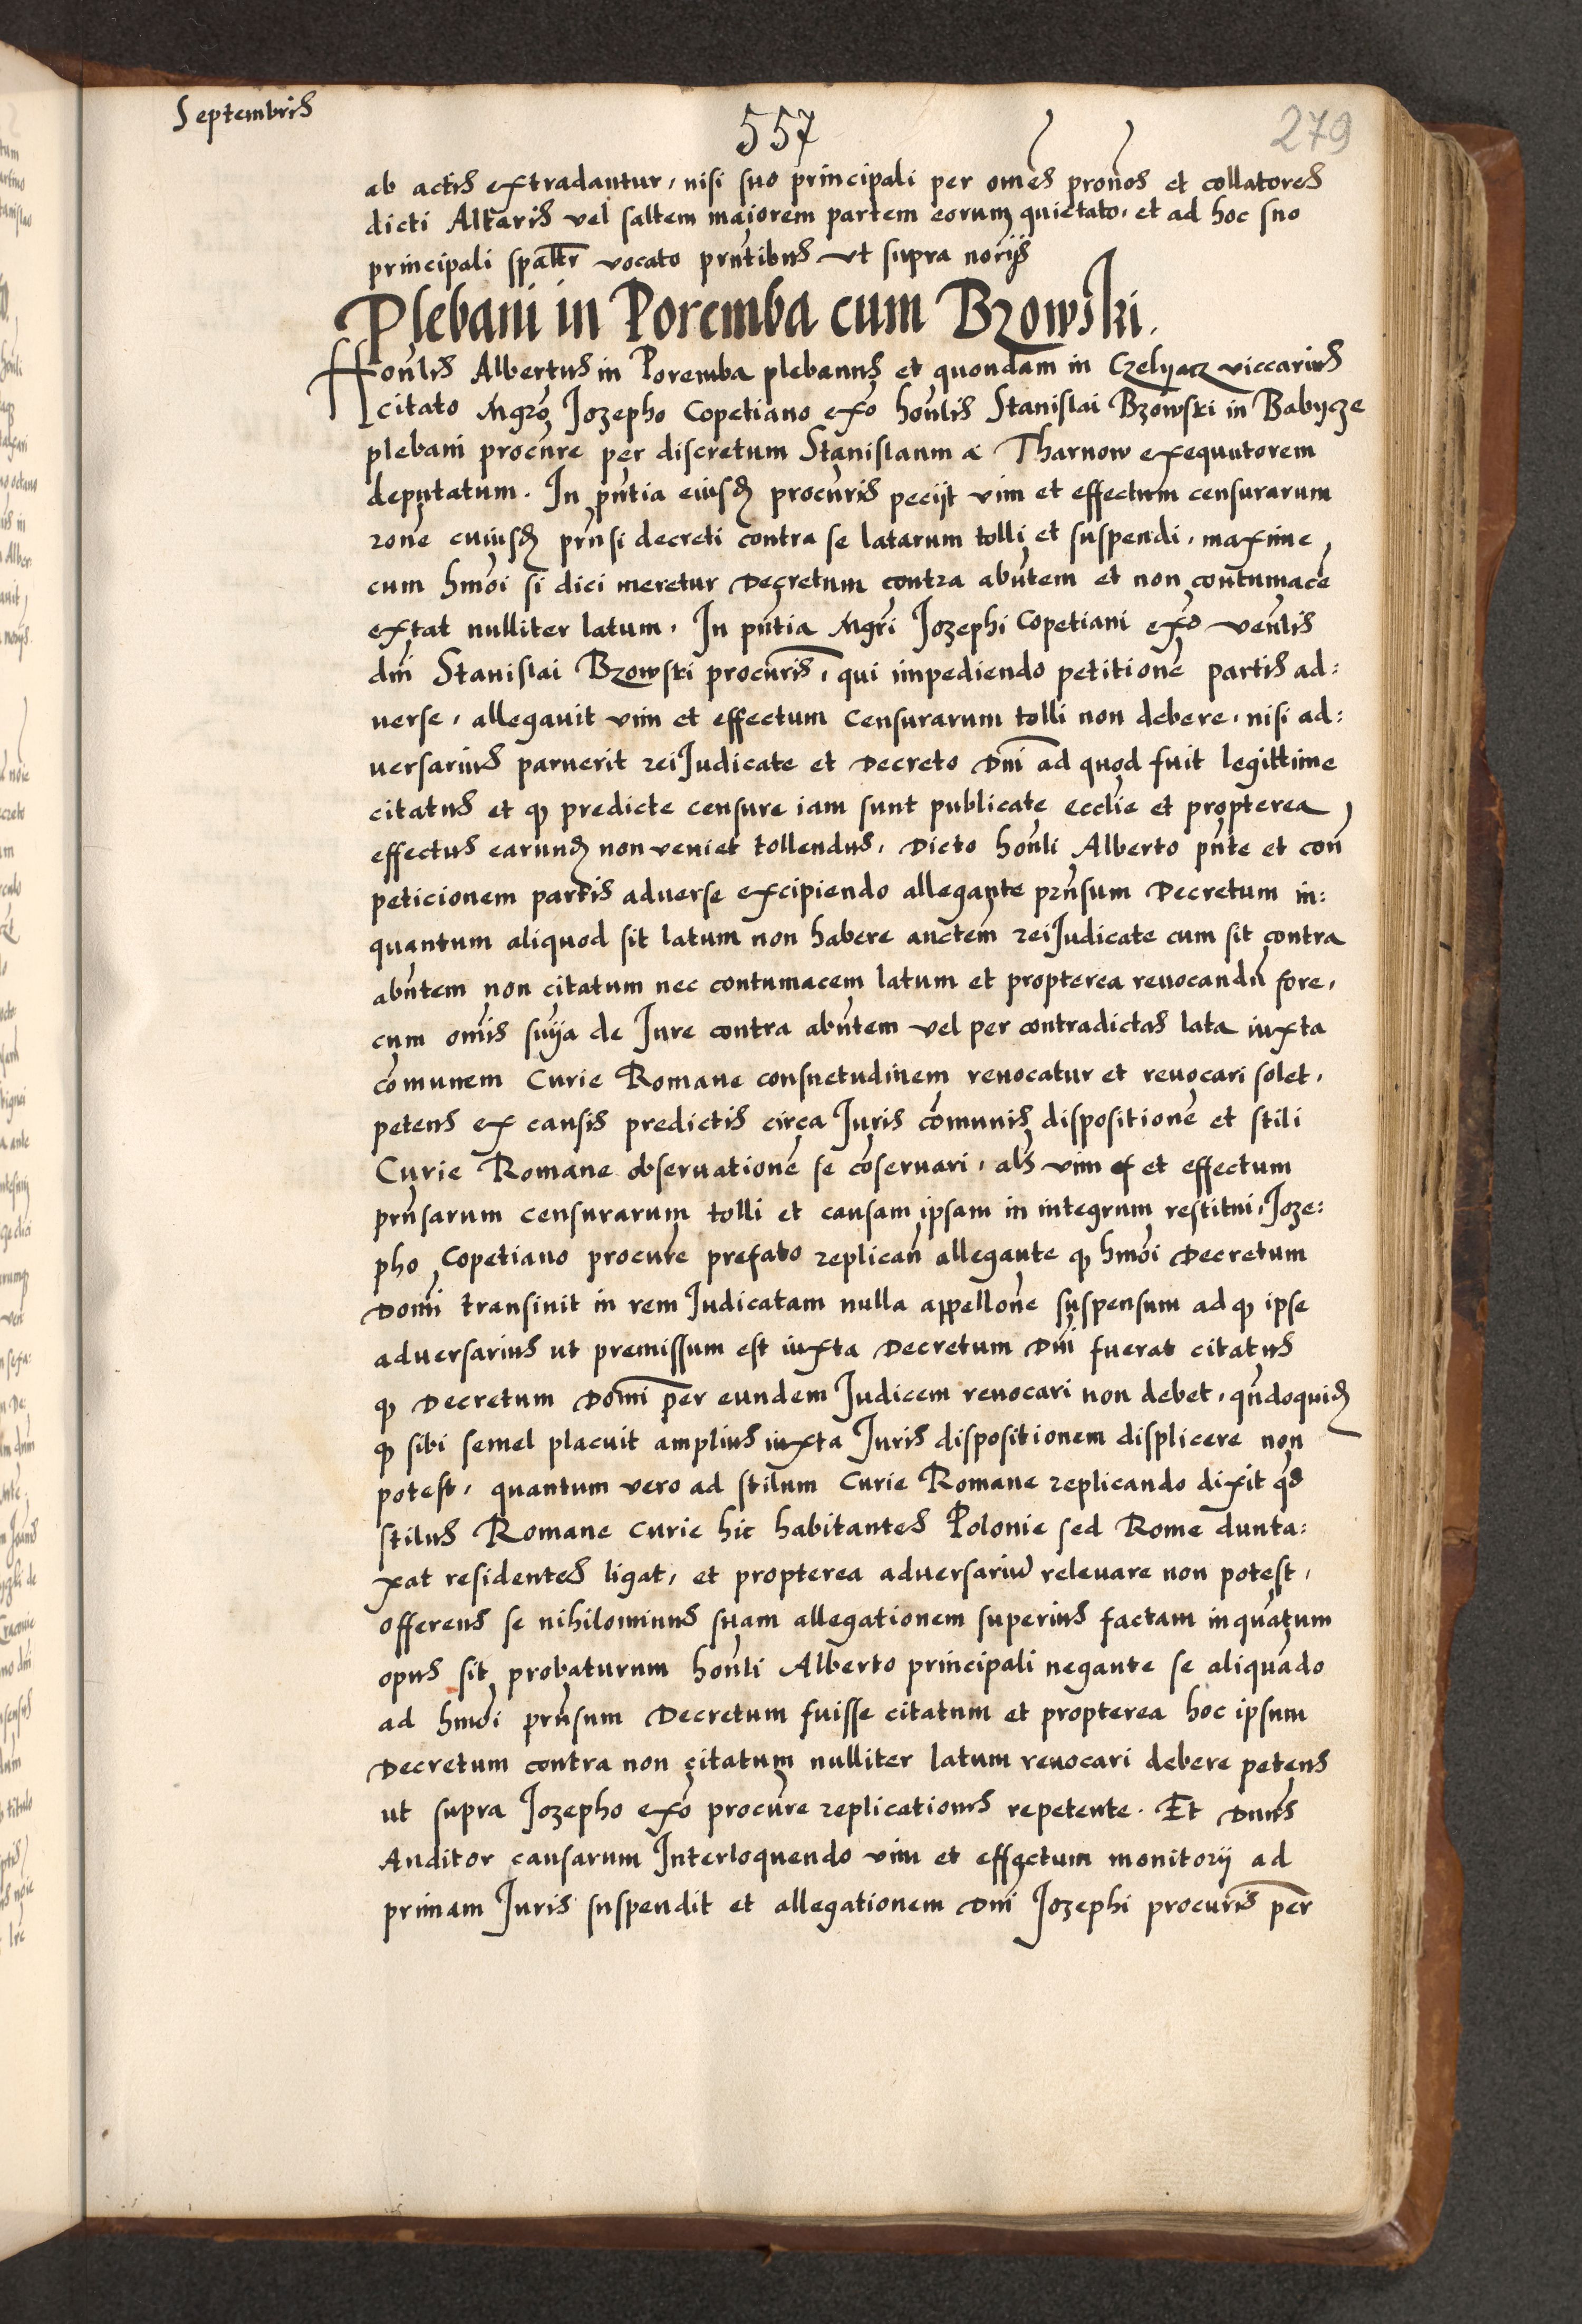 Septembris
557
279
ab actis extradantur, nisi suo principali per omēs pronōs et collatores
dicti Altaris vel saltem maiorem partem eorum quietato, et ad hoc suo
principali spāltr vocato prntibus vt supra norijs
Plebani in Poremba cum Bzowski.
Honlis Albertus in Poremba plebanus et quondam in Czelyacz viccarius
citato Mgrō Jozepho Copetiano exō honlis Stanislai Bzowski in Babycze
plebani procure per discretum Stanislaum a Tharnow exequutorem
deputatum. In pntia eiusd procuris pecijt vim et effectum censurarum
rone cuiusd prnsi decreti contra se latarum tolli et suspendi, maxime
cum hmōi si dici meretur Decretum contra abntem et non contumacē
extat nulliter latum. In pntia Mgri Jozephi Copetiani exō venlis
dni Stanislai Bzowski procuris, qui impediendo petitionē partis ad:
uerse, allegauit vim et effectum Censurarum tolli non debere, nisi ad:
uersarius paruerit rei Judicate et Decreto Dni ad quod fuit legittime
citatus et qp predicte censure iam sunt publicate ecclie et propterea
effectus earund non veniet tollendus, Dicto honli Alberto pnte et con
peticionem partis aduerse excipiendo allegante prnsum Decretum in:
quantum aliquod sit latum non habere auctem rei Judicate cum sit contra
abntem non citatum nec contumacem latum et propterea reuocandū fore,
cum omīs snīja de Jure contra abntem vel per contradictas lata iuxta
cōmunem Curie Romane consuetudinem reuocatur et reuocari solet,
petens ex causis predictis circa Juris cōmunis dispositionē et stili
Curie Romane obseruationē se cōseruari, als vim ef et effectum
prnsarum censurarum tolli et causam ipsam in integrum restitui, Joze:
pho Copetiano procure prefato replican allegante qp hmōi Decretum
Domi transiuit in rem Judicatam nulla appellone suspensum ad qp ipse
aduersarius ut premissum est iuxta Decretum Dni fuerat citatus
qp Decretum Domi per eundem Judicem reuocari non debet, qndoquid
qp sibi semel placuit amplius iuxta Juris dispositionem displicere non
potest, quantum vero ad stilum Curie Romane replicando dixit qd
stilus Romane Curie hic habitantes Polonie sed Rome dunta:
xat residentes ligat, et propterea aduersariū releuare non potest,
offerens se nihilominus suam allegationem superius factam inquātum
opus sit probaturum honli Alberto principali negante se aliquādo
ad hmōi prnsum Decretum fuisse citatum et propterea hoc ipsum
Decretum contra non citatum nulliter latum reuocari debere petens
ut supra Jozepho exō procure replicationis repetente. Et Dnus
Auditor causarum Interloquendo vim et effectum monitorij ad
primam Juris suspendit et allegationem Dni Jozephi procuris per